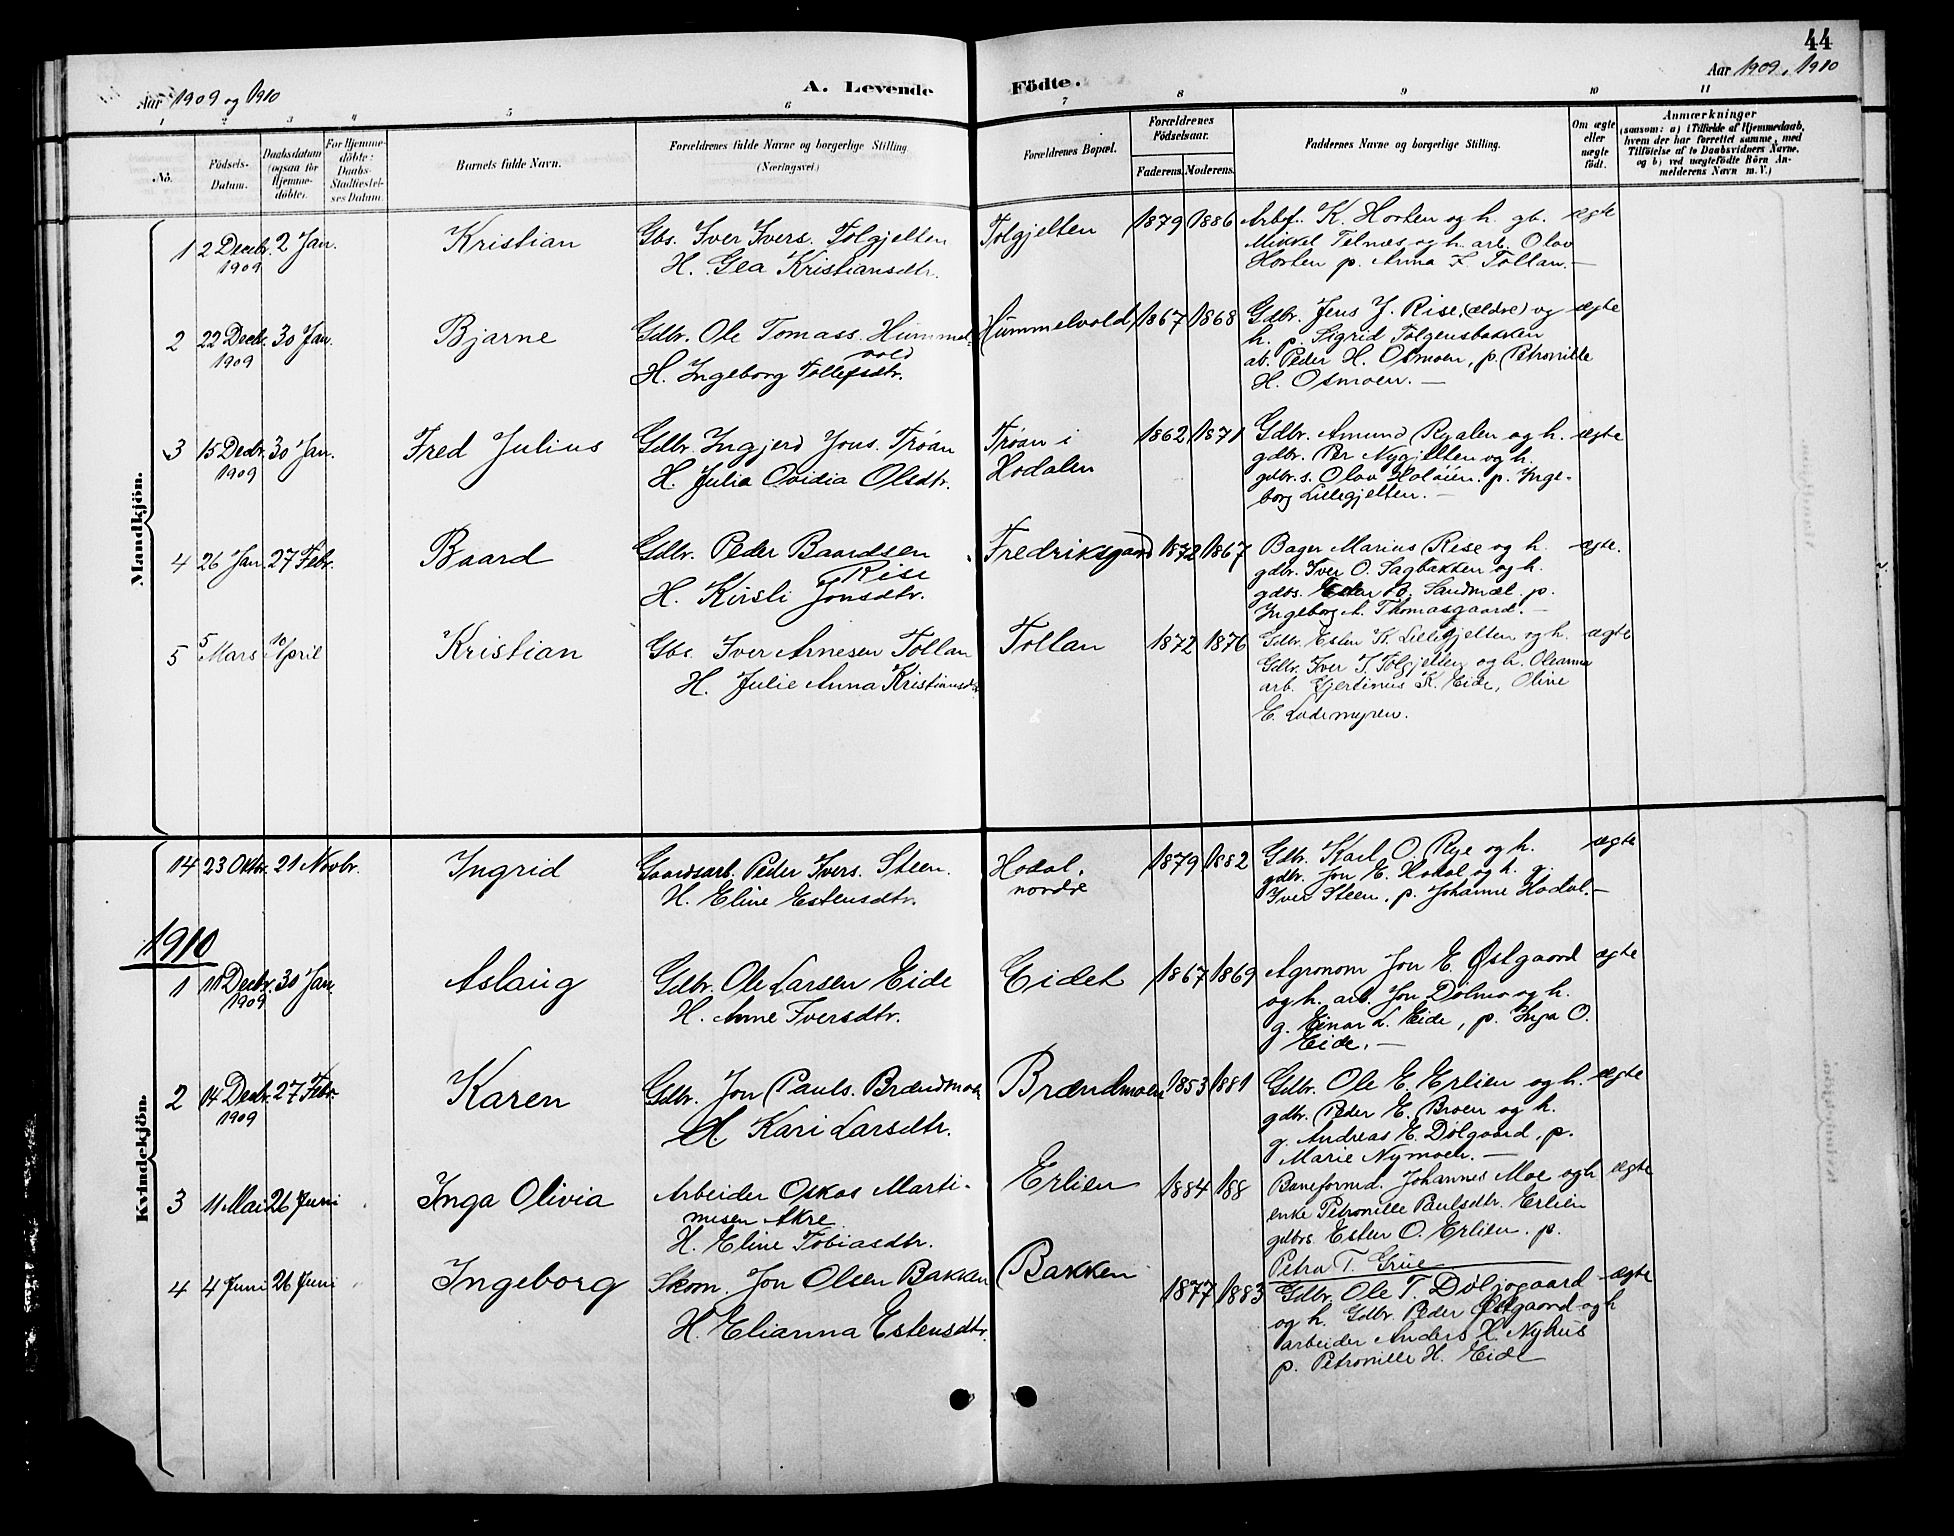 44
Aar 1909 og 1910
A. Levende
Födte.
Aar 1909, 1910
1 2 3 4 5 6 7 8 9 10 11
No.
Födsels-Datum.
Daabsdatum (ogsaa for Hjemme-döbte).
For Hjemme-döbte: Daabs-Stadfæstel-ses Datum.
Barnets fulde Navn.
Forældrenes fulde Navne og borgerlige Stilling (Næringsvei.)
Forældrenes Bopæl.
Forældrenes Födselsaar.
Faderens. Moderens.
Faddernes Navne og borgerlige Stilling.
Om ægte eller uægte födt.
Anmærkninger
(saasom: a) i Tilfælde af Hjemmedaab, hvem der har forrettet samme, med Tilföielse af to Daabsvidners Navne, og b) ved uægtefödte Börn Anmelderens Navn m. V.)
Mandkjön.
1 2 Decbr. 1909 2 Jan. Kristian
Gbs. Iver Ivers. Tolgjelten
H. Gea Kristiansdtr.
Tolgjelten 1879 1886
Arbf. K. Horten og h. gb.
Mikkel Telnæs og h. arb. Olov
Horten p. Anna I. Tollan. —
ægte
2 22 Decbr. 1909 30 Jan. Bjarne
Gdbr. Ole Tomass. Hummel-
vold
H. Ingeborg Tollefsdtr.
Hummelvold 1867 1868
Gdbr. Jens J. Rise, (ældre) og
h. p. Sigrid Tolgensbakken
ab. Peder H. Osmoen, p. Petronille
H. Osmoen. —
ægte
3 15 Decbr. 1909 30 Jan. Fred Julius
Gdbr. Ingjerd Jons. Trøan
H. Julia Ovidia Olsdtr.
Trøan i
Hodalen
1862 1871
Gdbr. Amund Ryalen og h.
gdbr. Per Nygjelten og h.
gdbr. s. Olov Holøien. p. Inge-
borg Lillegjelten. —
ægte
4 26 Jan. 27 Febr. Baard
Gdbr. Peder Baardsen
Rise
H. Kirsti Jonsdtr.
Fredriksgaard 1872 1867
Bager Marius Rise og h.
gdbr. Iver O. Sagbakken og h.
gdbs. Sandmæl. p.
Ingeborg A. Thomasgaard. —
ægte.
5 5 Mars 10 April Kristian
Gbs. Iver Arnesen Tollan
H. Julie Anna Kristiansdtr
Tollan 1872 1876
Gdbr. Esten K. Lillegjelten og h.
Gdbr. Iver I. Tolgjelten og h. Oleanna
arb. Gjertinus K. Eide, Oline
E. Lademyren.
ægte
Kvindekjön.
14 23 Oktbr. 21 Novbr. Ingrid
Gaardsarb. Peder Ivers. Steen.
H. Eline Estensdtr.
Hodal,
nordre
1879 1882
Gdbr. Karl O. Rye og h.
gdbr. Jon E. Hodal og h. g.
Iver Steen, p. Johanne Hodal. —
ægte
1910
1 11 Decbr. 1909 30 Jan. Aslaug
Gdbr. Ole Larsen Eide
H. Anne Iversdtr.
Eidet 1867 1869
Agronom Jon E. Østgaard
og h. arb. Jon Dølmo og h.
g. Einar L. Eide, p. Inga O.
Eide. —
ægte
2 14 Decbr. 1909 27 Febr. Karen
Gdbr. Jon Pauls. Brændmoen
H. Kari Larsdtr.
Brændmoen 1853 1881
Gdbr. Ole E. Erlien og h.
gdbr. Peder E. Broen og h.
g. Andreas E. Dølgaard, p.
Marie Nymoen. —
ægte
3 11 Mai 26 Juni Inga Olivia
Arbeider Oskar Marti-
nusen Akre
H. Eline Tobiasdtr.
Erlien 1884 188
Baneformd. Johannes Moe og h
enke Petronille Paulsdtr. Erlien
gdbrs. Esten O. Erlien. p.
Petra T. Grue
ægte
4 4 Juni 26 Juni Ingeborg
Skom. Jon Olsen Bakken
H. Elianna Estensdtr.
Bakken 1877 1883
Gdbr. Ole T. Døljogaard
og h. Gdbr. Peder Østgaard og h
arbeider Anders H. Nyhus
p. Petronille H. Eide
ægte